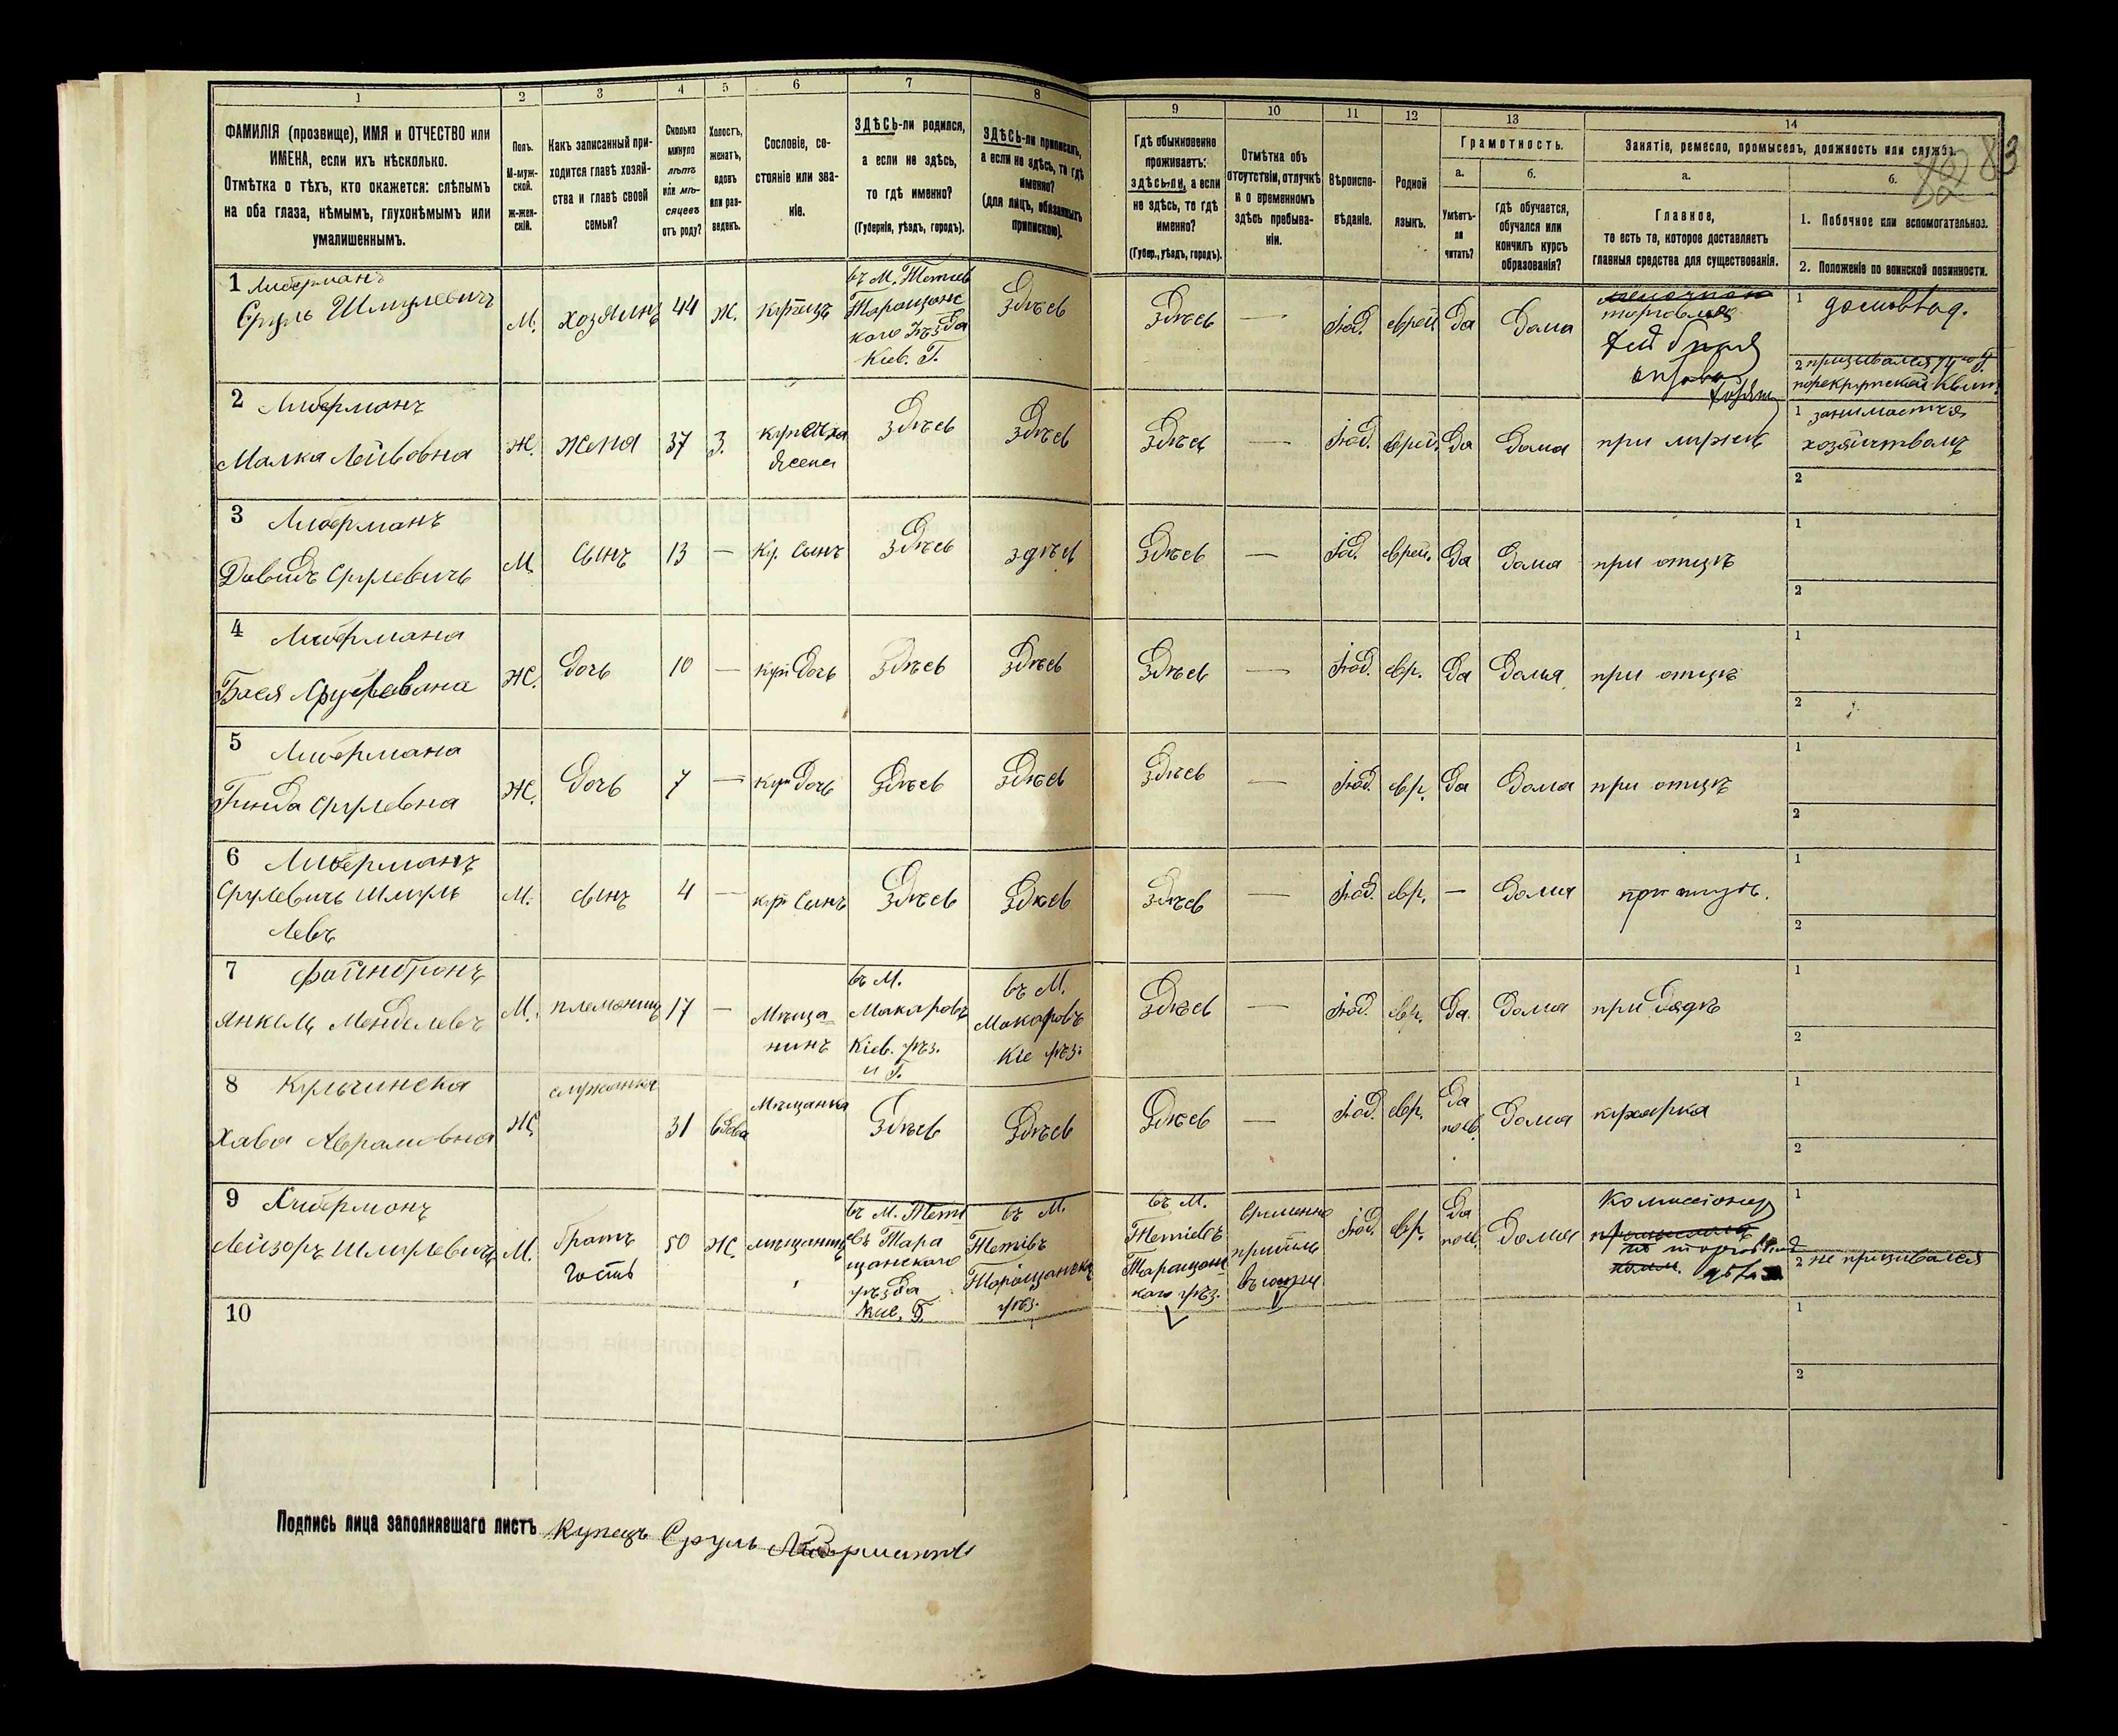 1
2
3
4
5
6
7
8
9
10
11
12
13
14
82 83
ФАМИЛІЯ (прозвище), ИМЯ и ОТЧЕСТВО или
ИМЕНА, если ихъ нѣсколько.
Отмѣтка о тѣхъ, кто окажется: слѣпымъ
на оба глаза, нѣмымъ, глухонѣмымъ или
умалишеннымъ.
Полъ.
М-муж-
ской.
Ж-жен-
скій.
Какъ записанный при-
ходится главѣ хозяй-
ства и главѣ своей
семьи?
Сколько
минуло
лѣтъ
или мѣ-
сяцевъ
отъ роду?
Холостъ,
женатъ,
вдовъ
или раз-
веденъ.
Сословіе, со-
стояніе или зва-
ніе.
ЗДѢСЬ-ли родился,
а если не здѣсь,
то гдѣ именно?
(Губернія, уѣздъ, городъ).
ЗДѢСЬ-ли приписанъ,
а если не здѣсь, то гдѣ
именно?
(для лицъ, обязанныхъ
припискою).
Гдѣ обыкновенно
проживаетъ:
здѣсь-ли, а если
не здѣсь, то гдѣ
именно?
(Губер., уѣздъ, городъ).
Отмѣтка объ
отсутствіи, отлучкѣ
и о временномъ
здѣсь пребыва-
ніи.
Вѣроиспо-
вѣданіе.
Родной
языкъ.
Грамотность.
а.
б.
Умѣетъ-
ли
читать?
Гдѣ обучается,
обучался или
кончилъ курсъ
образованія?
Занятіе, ремесло, промыселъ, должность или служба.
а.
б.
Главное,
то есть то, которое доставляетъ
главныя средства для существованія.
1. Побочное или вспомогательное.
2. Положеніе по воинской повинности.
1 Либерманъ
Сруль Шмулевичъ
М.
хозяинъ
44
Ж.
купецъ
въ М. Тетіев
Таращанс
каго Уѣзда
Кіев. Г.
Здѣсь
Здѣсь
—
Іюд.
еврей
Да
Дома
торговля
1 домовлад.
2 призывался 74 году
2 Либерманъ
Малка Лейбовна
Ж.
жена
37
З.
купечска
жена
Здѣсь
Здѣсь
Здѣсь
—
Іюд.
еврей.
Да
Дома
при мужѣ
1 занимается
хозяйствомъ
2
3 Либерманъ
Давидъ Срулевичъ
М
сынъ
13
—
Куп. сынъ
Здѣсь
здѣсь
Здѣсь
—
Іюд.
еврей.
Да
Дома
при отцѣ
1
2
4 Либермана
Бася Срулевна
Ж.
Дочь
10
—
куп. Дочь
Здѣсь
Здѣсь
Здѣсь
—
Іюд.
евр.
Да
Дома
при отцѣ
1
2
5 Либермана
Гинда Срулевна
Ж.
Дочь
7
—
куп. Дочь
Здѣсь
Здѣсь
Здѣсь
—
Іюд.
евр.
Да
Дома
при отцѣ
1
2
6 Либерманъ
Срулевичъ Шмуль
Левъ
М.
сынъ
4
—
куп. Сынъ
Здѣсь
Здѣсь
Здѣсь
—
Іюд.
евр.
—
Дома
при отцѣ.
1
2
7 Файнбронъ
Янкель Менделевъ
М.
племяникъ
17
—
Мѣща
нинъ
въ М.
Макаровъ
Кіев. уѣз.
и Г.
въ М.
Макаровъ
Кіе уѣз.
Здѣсь
—
Іюд.
евр.
Да.
Дома
при дядѣ
1
2
8 Кульчинска
Хава Аврамовна
Ж
служанка
31
вдова
Мѣщанка
Здѣсь
Здѣсь
Здѣсь
—
Іюд.
евр.
Да
по ев.
Дома
кухарка
1
2
9 Либерманъ
Лейзоръ Шмулевичъ
М.
Братъ
гость
50
Ж.
мѣщанинъ
въ М. Тетi
евъ Тара
щанскаго
уѣзда
Кіе. Г.
въ М.
Тетіевъ
Таращанск
уѣз.
въ М.
Тетіевъ
Таращанс
каго уѣз.
временно
Іюд.
евр.
Да
по ев.
Дома
Комиссіонер
1
2 не призывался
10
1
2
Подпись лица заполнявшаго листъ Купецъ Сруль Либерманъ